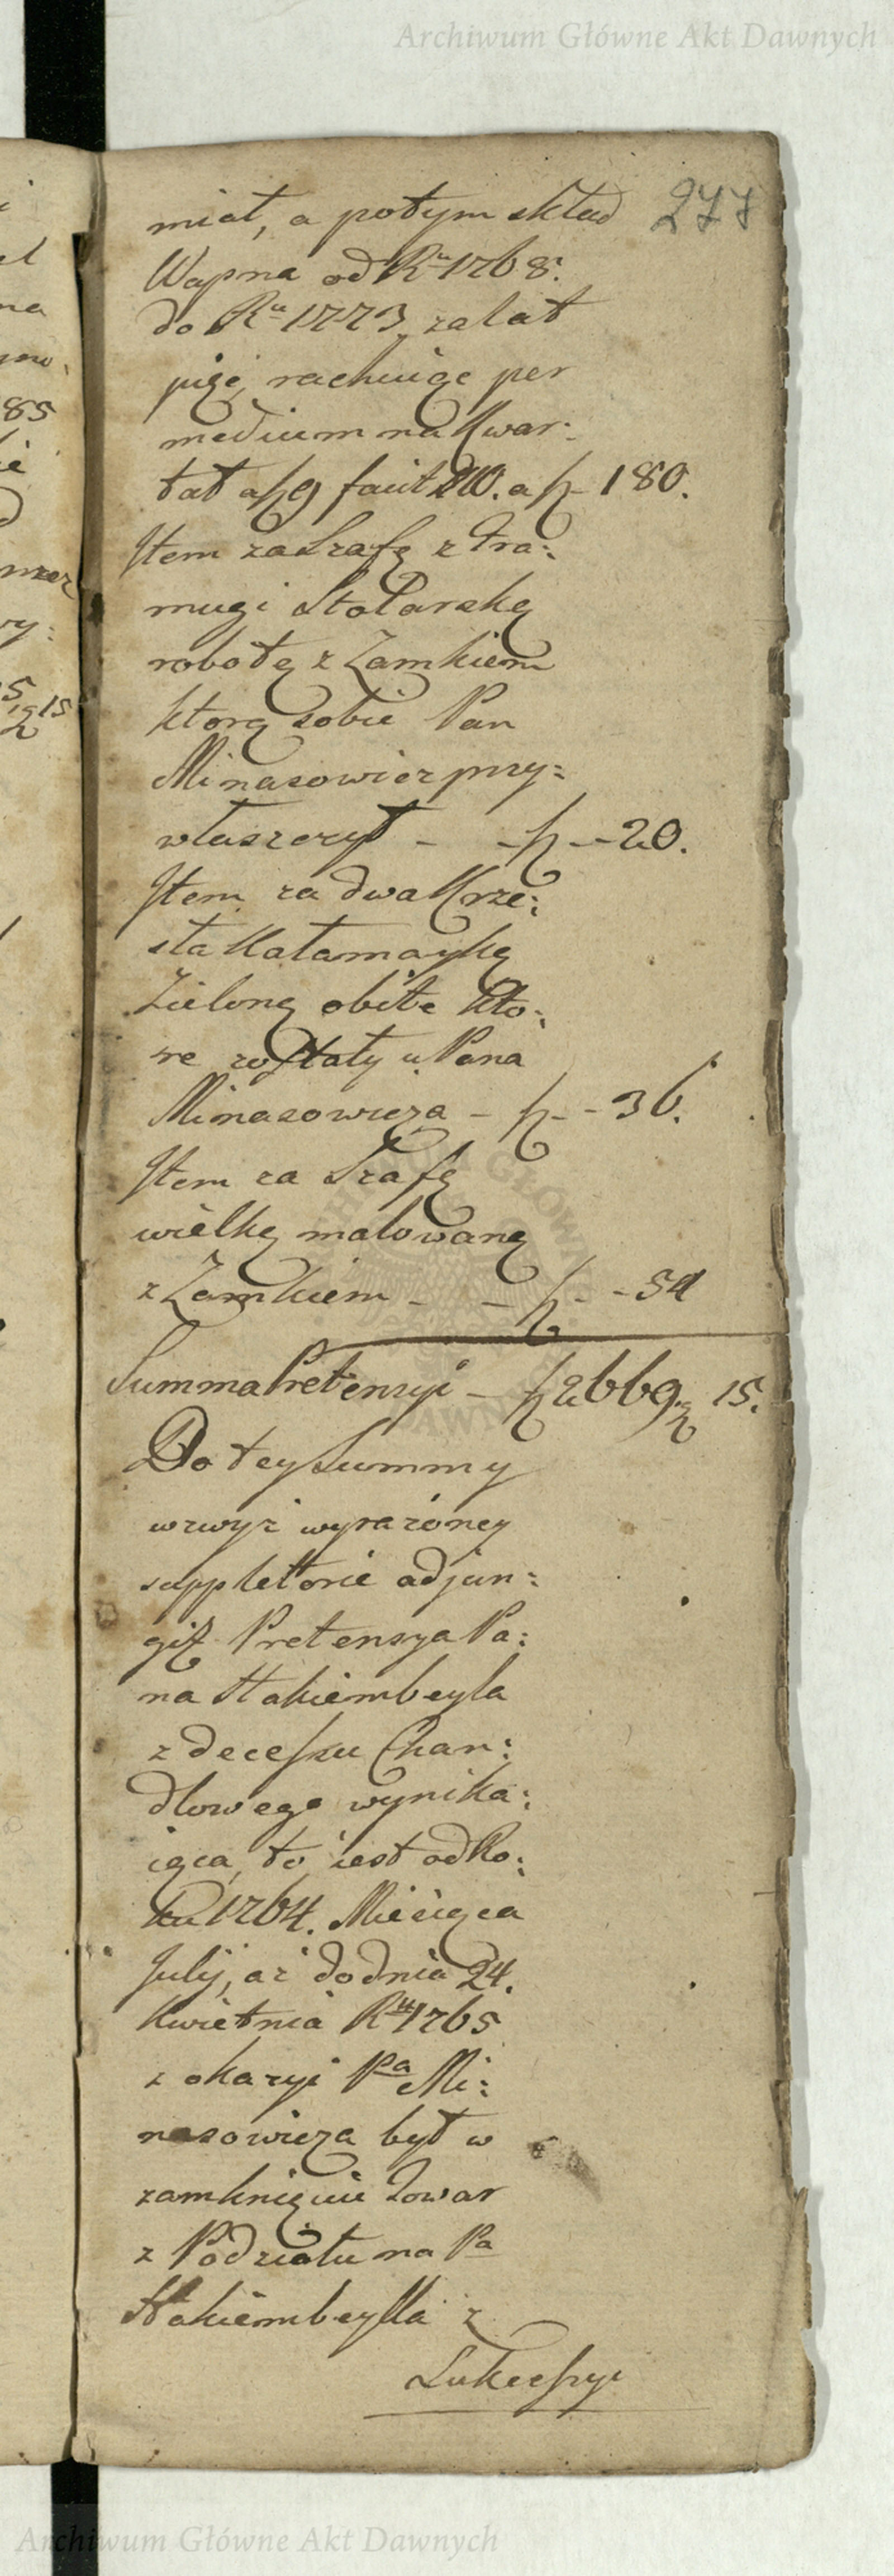 Archiwum Główne Akt Dawnych
277
miał, a potym skład
Wapna od Ru 1768.
do Ru 1773 za lat
pięć, rachuiąc per
medium na Kwar:
tał a fl 9 facit a fl 180.
Item za Szafę z Fra:
mugi Stolarską
robotą z Zamkiem
ktorą sobie Pan
Minasowicz przy:
właszczył - - fl - - 20.
Item za dwa Krze:
sła Kałamayką
Zieloną obite kto:
re zostały u Pana
Minasowicza - fl - - 36.
Item za Szafę
wielką malowaną
z Zamkiem - - fl - - 54
Summa Pretensyi - fl 2669 g 15.
Do tey Summy
wzwyż wyrażoney
suppletorie adjun:
git Pretensya Pa:
na Hakiembeyla
z decessu Chan:
dlowego wynika:
iąca, to iest od Ro:
ku 1764. Miesiąca
July, aż do dnia 24.
Kwietnia Ru 1765
z okazyi Pa Mi:
nasowicza był w
zamknięciu Towar
z Podziału na Pa
Hakiembeylla z
Sukcessyi
85
15
Archiwum Główne Akt Dawnych